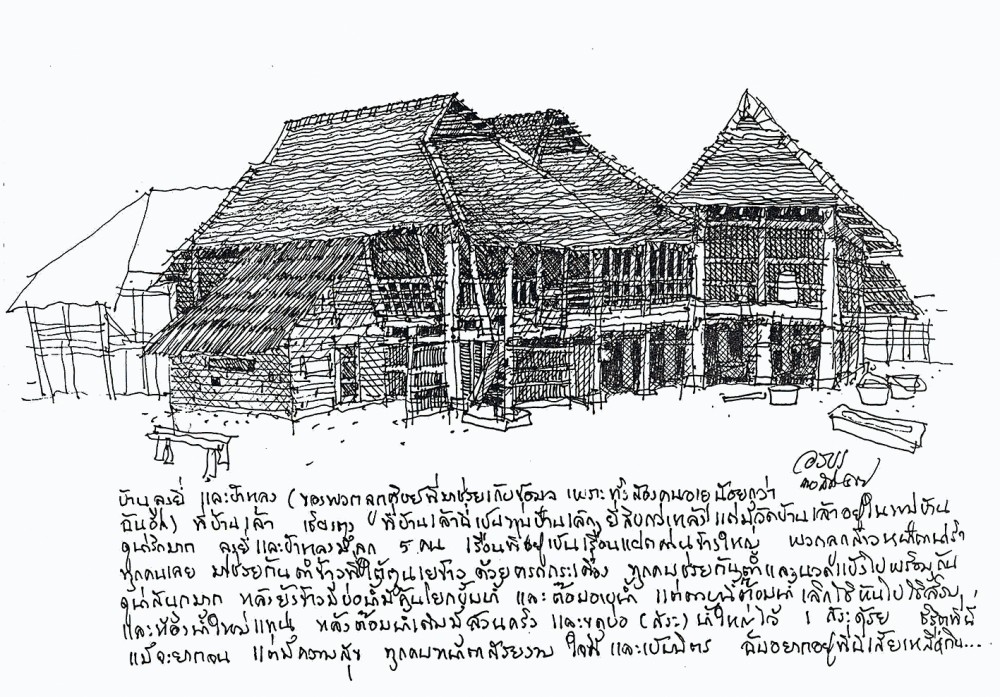 บ้านลุงยี่ และป้าหลง (ของพวกลูกศิษย์ที่มาช่วยเก็บข้อมูล เพราะทั้งสองคนอายุน้อยกว่า
ฉันอีก) ที่บ้านเล้า ที่บ้านเล้านี้เป็นหมู่บ้านเล็กๆ ยี่สิบกว่าหลัง แต่มีวัดบ้านเล้าอยู่ในหมู่บ้าน
น่ารักมาก ลุงยี่และป้าหลงมีลูก 5 คน เรือนที่อยู่เป็นเรือนแฝด ใหญ่ พวกลูกสาว
ทุกคนเลย มาช่วยกันตำข้าวที่ใต้ถุนยุ้งข้าว ด้วยครกกระเดื่อง ทุกคนช่วยกันตำและ ไปพร้อมกัน
ดูน่าสนุกมาก หลังยุ้งข้าวมีบ่อน้ำมีคันโยกขึ้นน้ำ และห้องอาบน้ำ แต่ ห้องน้ำ เลิกใช้หันไปใช้ส้วม
และห้องน้ำใหม่แทน หลังห้องน้ำเดิมมีสวนครัว และขุดบ่อ (สระ) น้ำใหญ่ไว้ 1 สระด้วย ชีวิตที่นี่
แม้จะยากจน แต่มีความสุข ทุกคนหน้าตาสวยงาม ใจดี และเป็นมิตร ฉันอยากอยู่ที่นี่เสียเหลือเกิน...